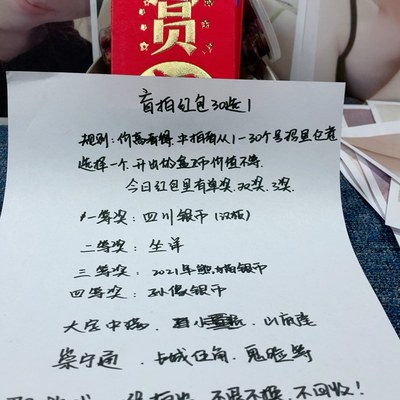 赏
盲拍红包30选1
规则:价高者得,中拍者从1-30个号码里任意
选择一个,开出的盒子币价值不等
今日红包里有单奖,双奖,3奖,
一等奖:四川银币(汉版)
二等奖:坐洋
三等奖:2021年熊猫银币
四等奖:孙像银币
大宝中 山
崇宁通 长城伍角 鬼脸等
不退不换,不回收!